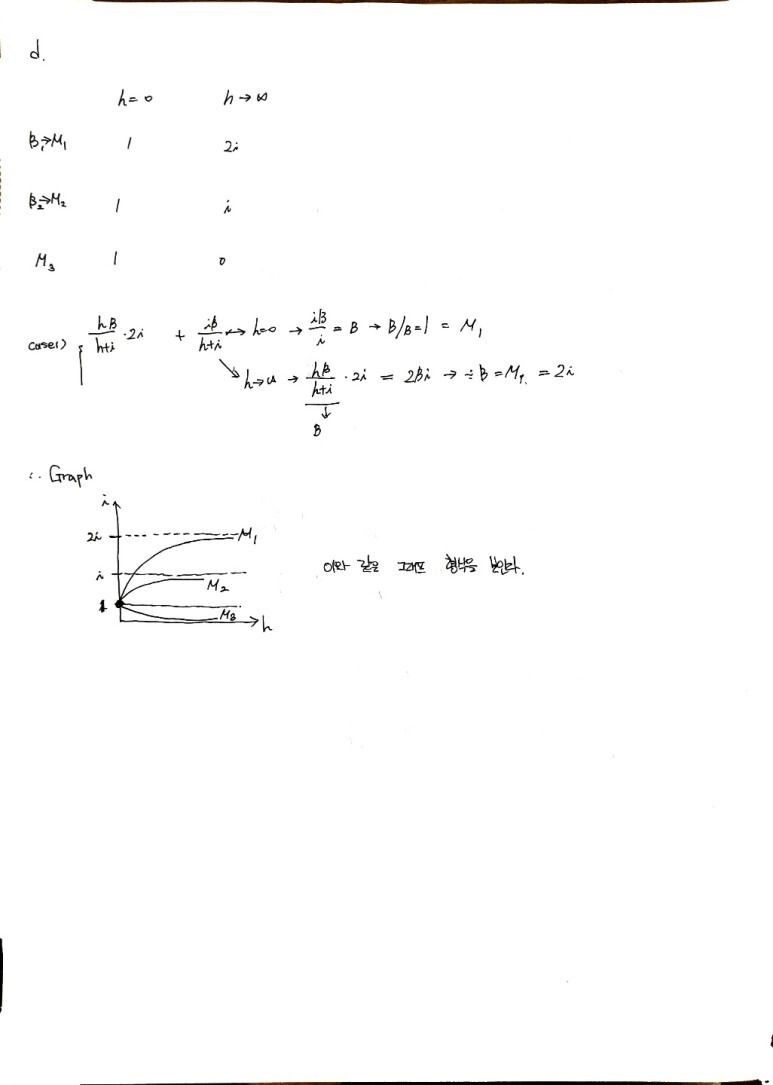 d.
h=0 h→∞
B₁→M₁ 1 2i
B₂→M₂ 1 i
M₃ 1 0
case1) hB/h+i · 2i + iB/h+i ↔ h=0 → iB/i = B → B/B=1 = M₁
h→∞ → hB/h+i · 2i = 2Bi → ÷B = M₁. = 2i
↓
B
∴ Graph
i
2i M₁
i M₂
1 M₃
h
이와 같은 그래프 형식을 보인다.